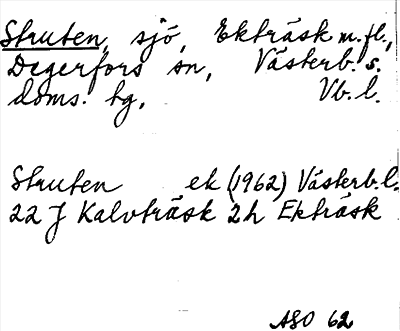 Struten, sjö, Ekträsk m.fl.,
Degerfors sn, Västerb. s.
doms. tg, Vb. l.
Struten ek (1962) Västerb. l.
22 J Kalvträsk 2h Ekträsk
ASO 62